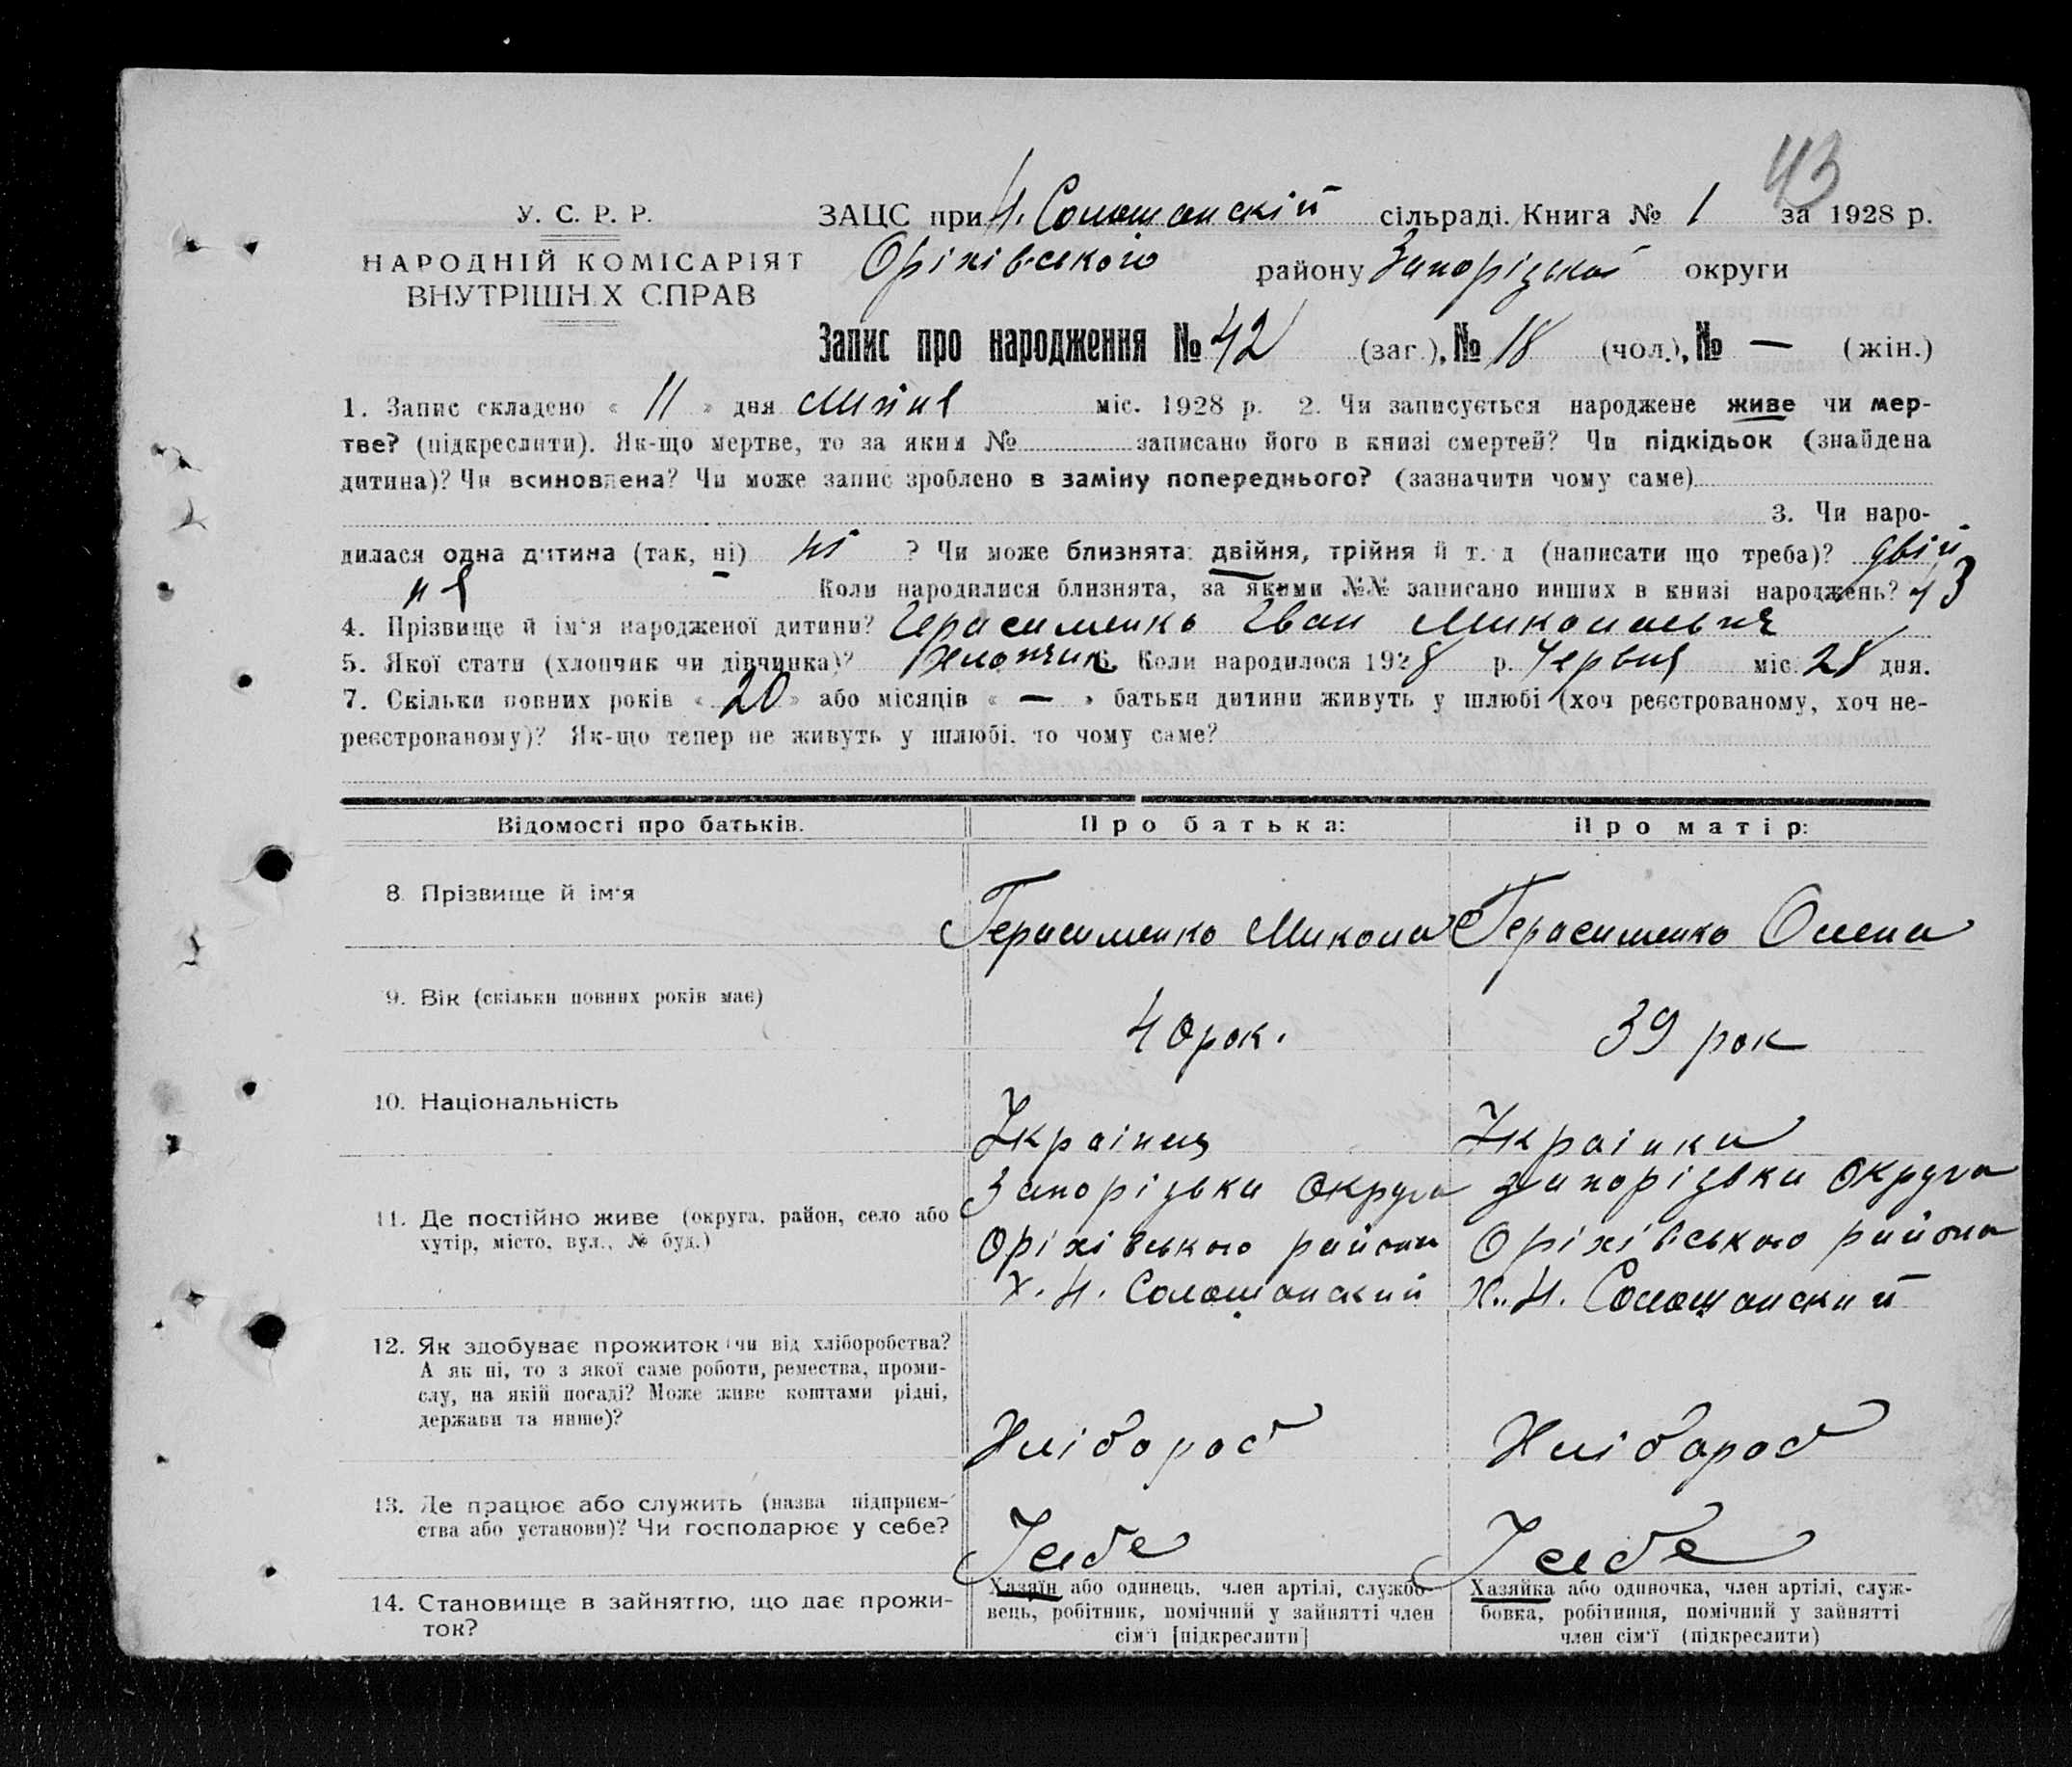 43
У. С. Р. Р.
НАРОДНІЙ КОМІСАРІЯТ
ВНУТРІШН Х СПРАВ
ЗАЦС при Н. Солошанскій сільраді. Книга № 1 за 1928 р.
Оріхівського району Запорізькой округи
Запис про народження № 42 (заг.), № 18 (чол.), № — (жін.)
1. Запис складено « 11 » дня Липня міс. 1928 р. 2. Чи записується народжене живе чи мер-
тве? (підкреслити). Як-що мертве, то за яким № записано його в книзі смертей? Чи підкідьок (знайдена
дитина)? Чи всиновлена? Чи може запис зроблено в заміну попереднього? (зазначити чому саме)
3. Чи наро-
дилася одна дитина (так, ні) ні ? Чи може близнята: двійня, трійня й т. д (написати що треба)? двій
ня Коли народилися близнята, за якими №№ записано инших в книзі народжень? 43
4. Прізвище й ім'я народженої дитини? Герасименко Іван Миколаевич
5. Якої стати (хлопчик чи дівчинка)? Хлопчик 6. Коли народилося 1928 р. Червня міс. 28 дня.
7. Скільки повних років « 20 » або місяців « — » батьки дитини живуть у шлюбі (хоч реєстрованому, хоч не-
реєстрованому)? Як-що тепер не живуть у шлюбі, то чому саме?
Відомості про батьків. Про батька: Про матір:
8. Прізвище й ім'я Герасименко Микола Герасименко Олена
9. Вік (скільки повних років має) 40 рок. 39 рок
10. Національність Українец Українка
11. Де постійно живе (округа, район, село або
хутір, місто, вул., № буд.)
Запорізька Округа Запорізька Округа
Оріхівського района Оріхівського района
Х. Н. Солошанский Х. Н. Солошанский
12. Як здобуває прожиток (чи від хліборобства?
А як ні, то з якої саме роботи, ремества, проми-
слу, на якій посаді? Може живе коштами рідні,
держави та инше)?
Хлібороб Хлібороб
13. Де працює або служить (назва підприєм-
ства або установи)? Чи господарює у себе?
У себе У себе
14. Становище в зайняттю, що дає прожи-
ток?
Хазяїн або одинець, член артілі, службо-
вець, робітник, помічний у зайнятті член
сім'ї [підкреслити]
Хазяйка або одиночка, член артілі, служ-
бовка, робітниця, помічний у зайнятті
член сім'ї (підкреслити)